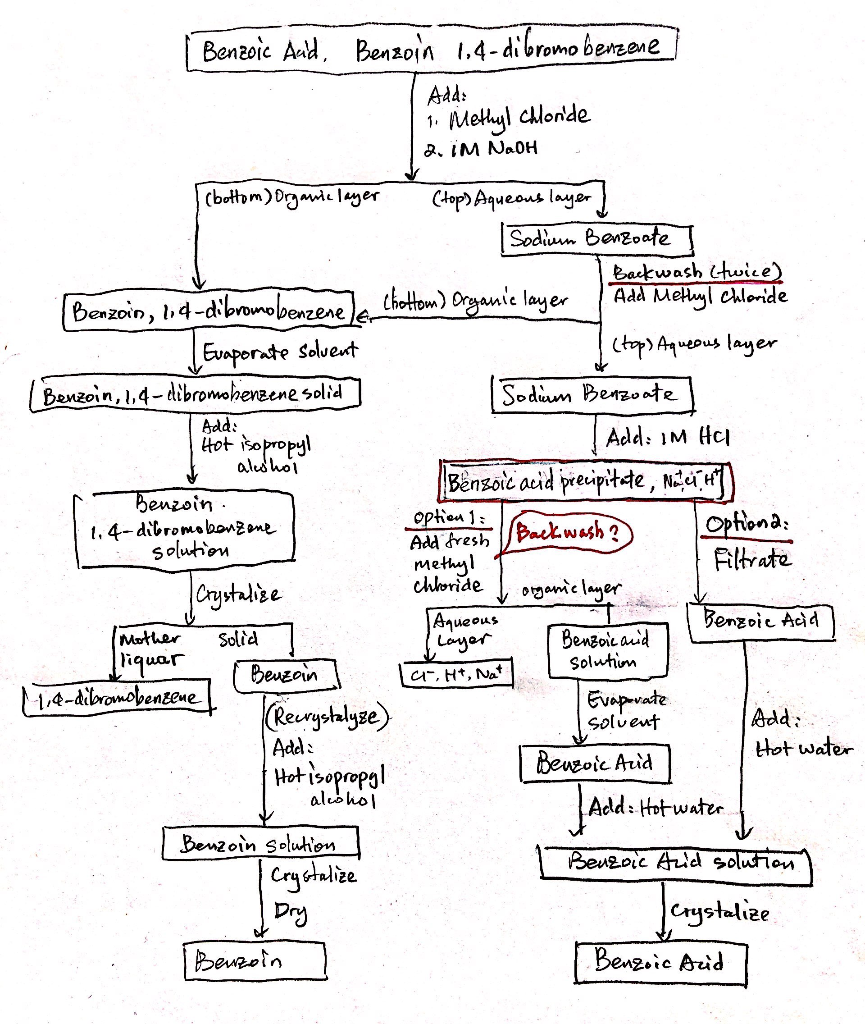 Benzoic Acid, Benzoin 1,4-dibromobenzene
Add:
1. Methyl Chloride
2. 1M NaOH
(bottom) Organic layer
(top) Aqueous layer
Sodium Benzoate
Backwash (twice)
Add Methyl chloride
(bottom) Organic layer
Benzoin, 1,4-dibromobenzene
(top) Aqueous layer
Evaporate solvent
Benzoin, 1,4-dibromobenzene solid
Sodium Benzoate
Add:
Hot isopropyl
alcohol
Add: 1M HCl
Benzoic acid precipitate, Na⁺, Cl⁻, H⁺
Benzoin.
1,4-dibromobenzene
solution
Option 1:
Add fresh
methyl
chloride
Backwash?
Option 2:
Filtrate
Crystalize
organic layer
Aqueous
Layer
Benzoic acid
solution
Benzoic Acid
Mother
liquar
Solid
Cl⁻, H⁺, Na⁺
1,4-dibromobenzene
Benzoin
Evaporate
solvent
(Recrystalyze)
Add:
Hot isopropyl
alcohol
Add:
Hot water
Benzoic Acid
Add: Hot water
Benzoin solution
Benzoic Acid solution
Crystalize
Dry
Crystalize
Benzoin
Benzoic Acid